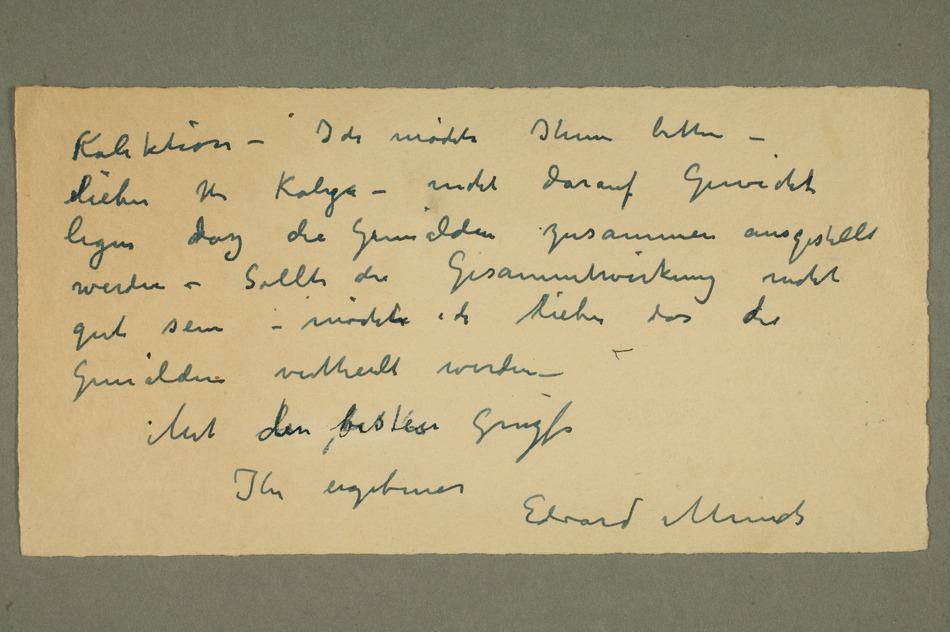 Kolektion – Ich möchte Ihnen bitten –
lieber Hr Kolega – nicht darauf Gewicht
legen daß die Gemälden zusammen ausgestellt
werden – Sollte die Gesammtwirkung nicht
gut sein – möchte ich lieber das die
Gemälden vertheilt werden –
Mit den besten Grüße
Ihr ergebener
Edvard Munch